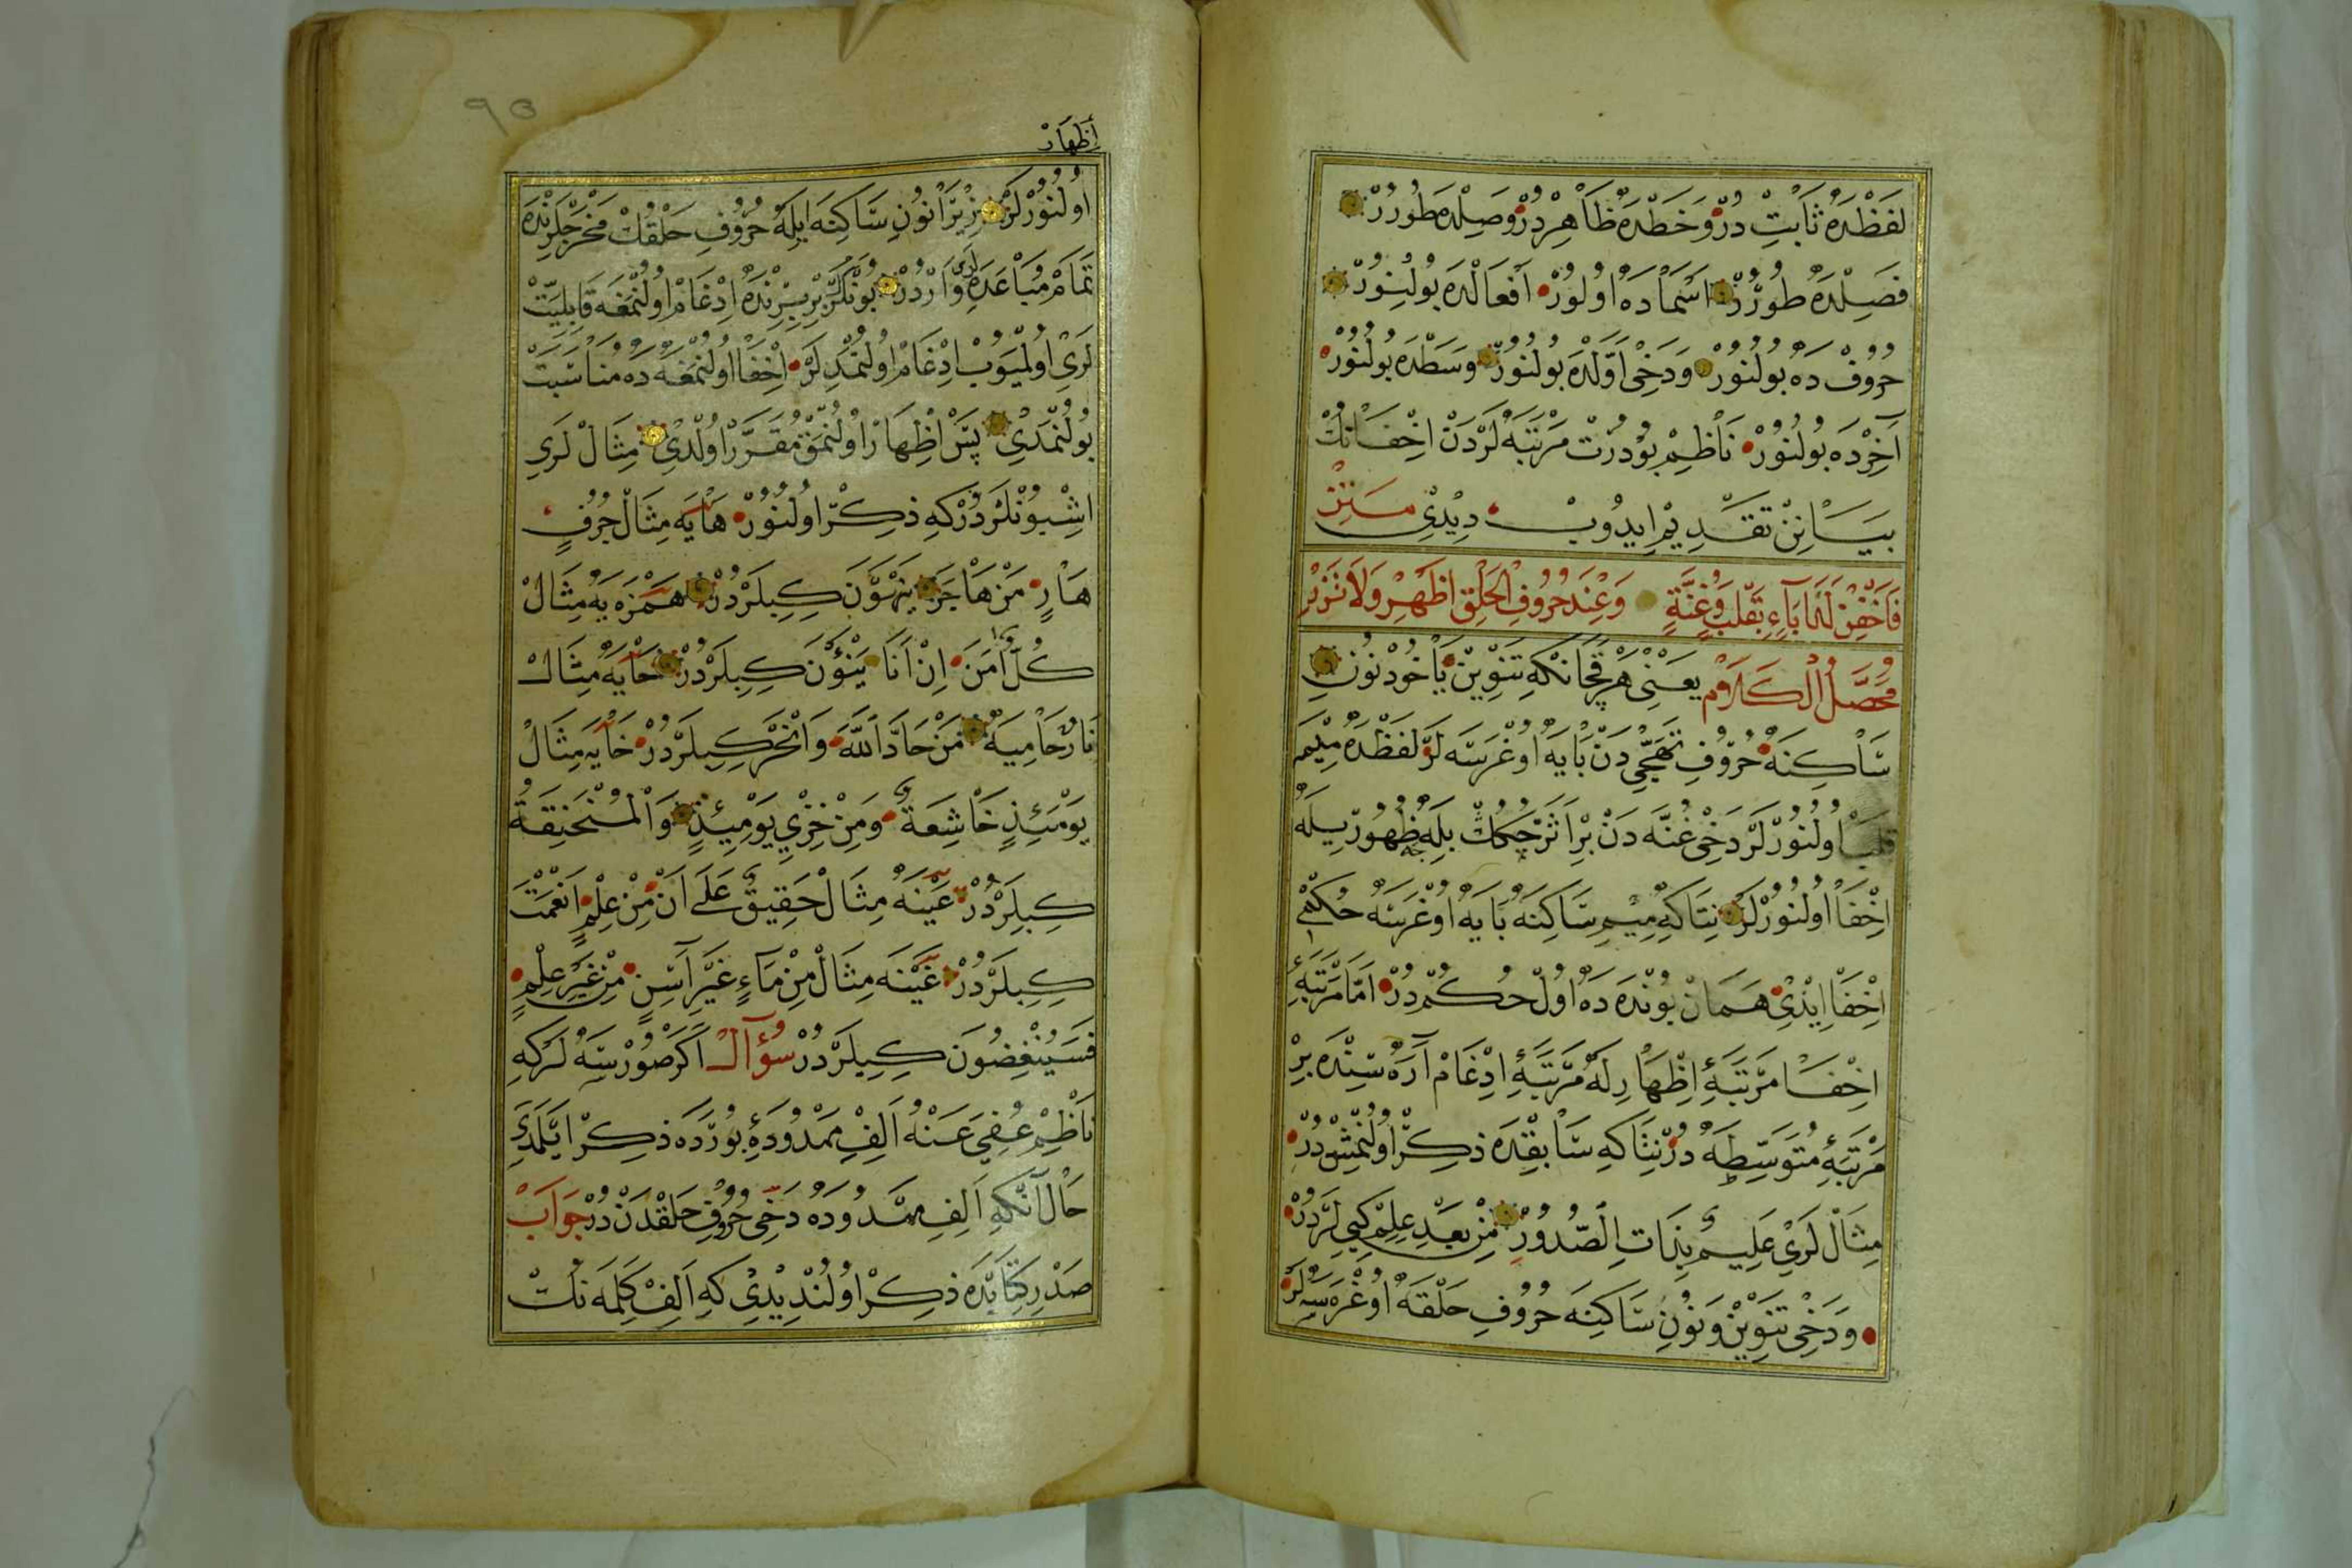 لفظده ثابت در وخطده ظاهر در وصلده طورر
فصلده طورر اسماده اولور افعالده بولنور
حروف ده بولنور ودخى اولده بولنور وسطده بولنور
آخرده بولنور ناظم بو درت مرتبه لردن اخفانك
بيانن تقديم ايدوب ديدى متن
فاخفين لدا باء بقلب وغنة وعند حروف الحلق اظهر ولا تزر
محصل الكلام يعنى هر قچانكه تنوين يا خود نون
ساكنه حروف تهجى دن بايه اوغرسه لر لفظده ميمه
قلب اولنورلر دخى غنه دن بر اثر جكك بله ظهوريله
اخفا اولنورلر نتاكه ميم ساكنه بايه اوغرسه حكمى
اخفا ايدى همان بونده ده اول حكم در اما مرتبۀ
اخفا مرتبۀ اظهارله مرتبۀ ادغام آره سنده بر
مرتبۀ متوسطه در نتاكه سابقده ذكر اولنمش در
مثال لرى عليم بذات الصدور من بعد علم كبى لر در
ودخى تنوين ونون ساكنه حروف حلقه اوغره سه لر
اظهار
اولنورلر زيرا نون ساكنه ايله حروف حلقك مخرجلرنده
تمام مباعده لرى واردر بونلر بربرنده ادغام اولنمغه قابليت
لرى اولميوب ادغام اولنمدلر اخفا اولنمغه ده مناسبت
بولنمدى پس اظهار اولنمق مقرر اولدى مثال لرى
اشبونلردركه ذكر اولنور هايه مثال جرف
هار من هاجر ينهون كبيلردر همزه يه مثال
كل امن ان انا ينؤن كبيلردر حايه مثال
نار حامية من حاد الله وانحر كبيلردر خايه مثال
يومئذ خاشعة ومن خزي يومئذ والمنخنقة
كبيلردر عينه مثال حقيق على ان من علم انعمت
كبيلردر غينه مثال من ماء غير آسن من غير علم
فسينغضون كبيلردر سؤال اكر صورسه لركه
ناظم عفي عنه الف ممدودۀ بورده ذكر ايلمدى
حال آنكه الف ممدوده دخى حروف حلقدن در جواب
صدر كتابده ذكر اولنديدى كه الف كلمه نك